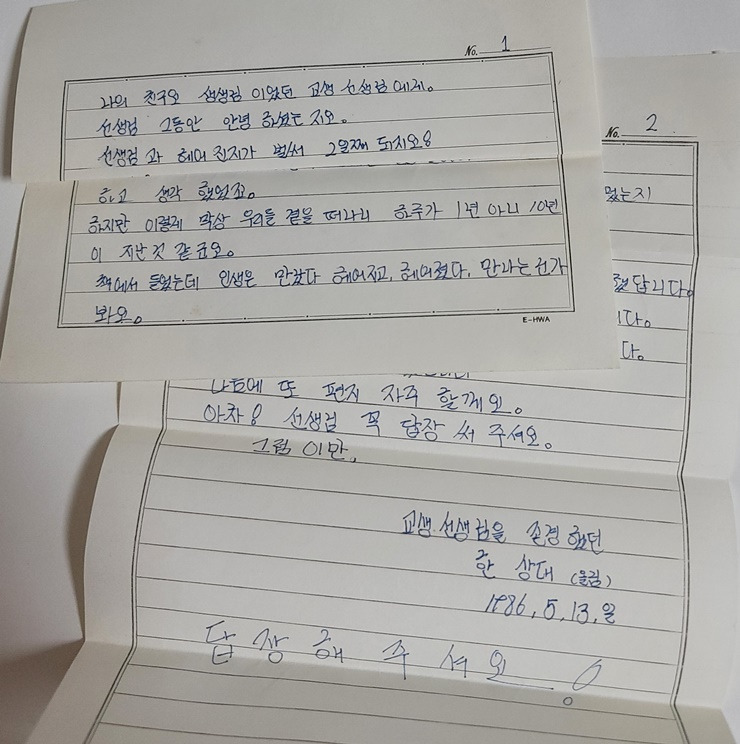 No. 1
나의 친구요 생생님 이었던 교생 선생님에게.
선생님 그동안 안녕 하셨는 지요.
선생님 과 헤어 진지가 벌써 2일째 되지요?
하고 생각 했었죠.
하지만 이렇게 막상 우리들 곁을 떠나니 하루가 1년 아니 10년
이 지난것 같군요.
책에서 들었는데 인생은 만났다 헤어지고, 헤어졌다, 만나는건가
봐요.
E-HWA
No. 2
했답니다.
니다.
다.
다음에 또 편지 자주 할께요.
아차! 선생님 꼭 답장 써 주셔요.
그럼 이만,
교생 선생님을 존경 했던
한 상대 (올림)
1986. 5. 13. 일
답장해주셔요!